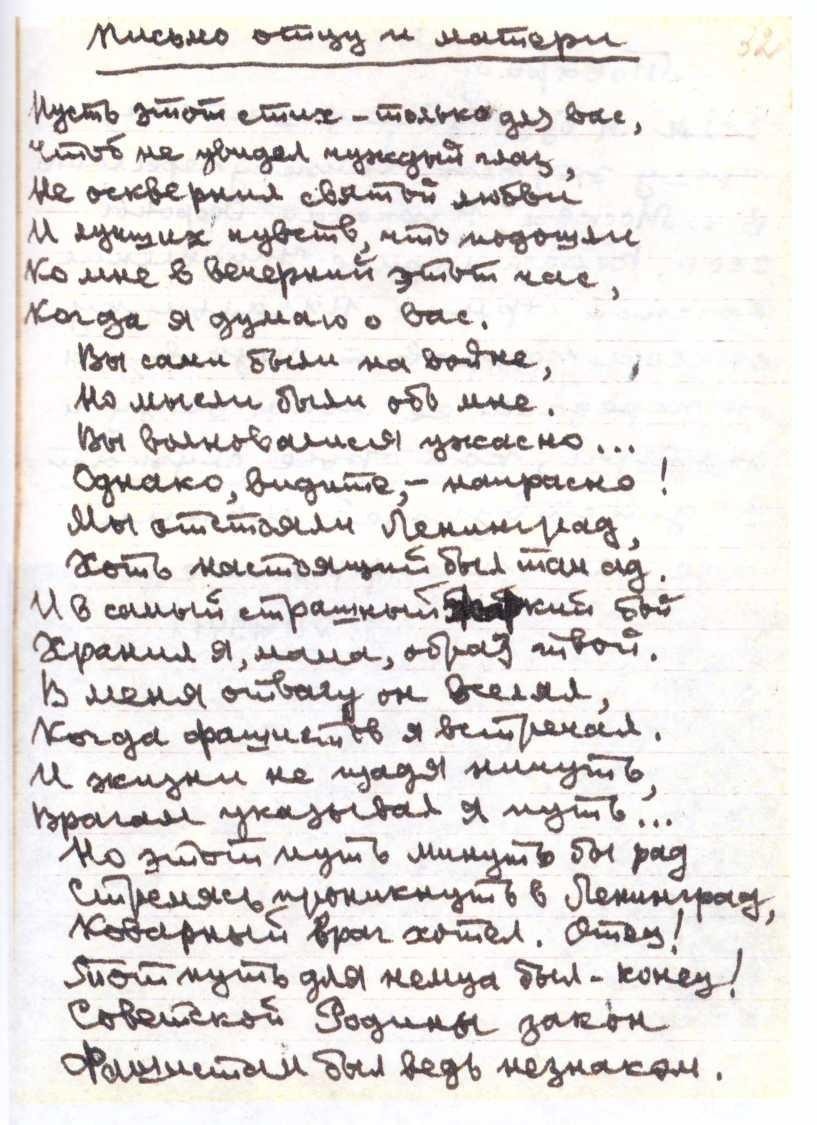 Письмо отцу и матери
32
Пусть этот стих – только для вас,
Чтоб не увидел чуждый глаз,
Не осквернил святой любви
И лучших чувств, что подошли
Ко мне в вечерний этот час,
Когда я думаю о вас.
Вы сами были на войне,
Но мысли были обо мне.
Вы волновалися ужасно...
Однако, видите, – напрасно!
Мы отстояли Ленинград,
Хоть настоящий был там ад.
И в самый страшный жаркий бой
Хранил я, мама, образ твой.
В меня отвагу он вселял,
Когда фашистов я встречал.
И жизни не щадя ничуть,
Врагам указывал я путь...
Но этот путь минуть бы рад
Стремясь проникнуть в Ленинград,
Коварный враг хотел. Отец!
Тот путь для немца был – конец!
Советской Родины закон
Фашистам был ведь незнаком.